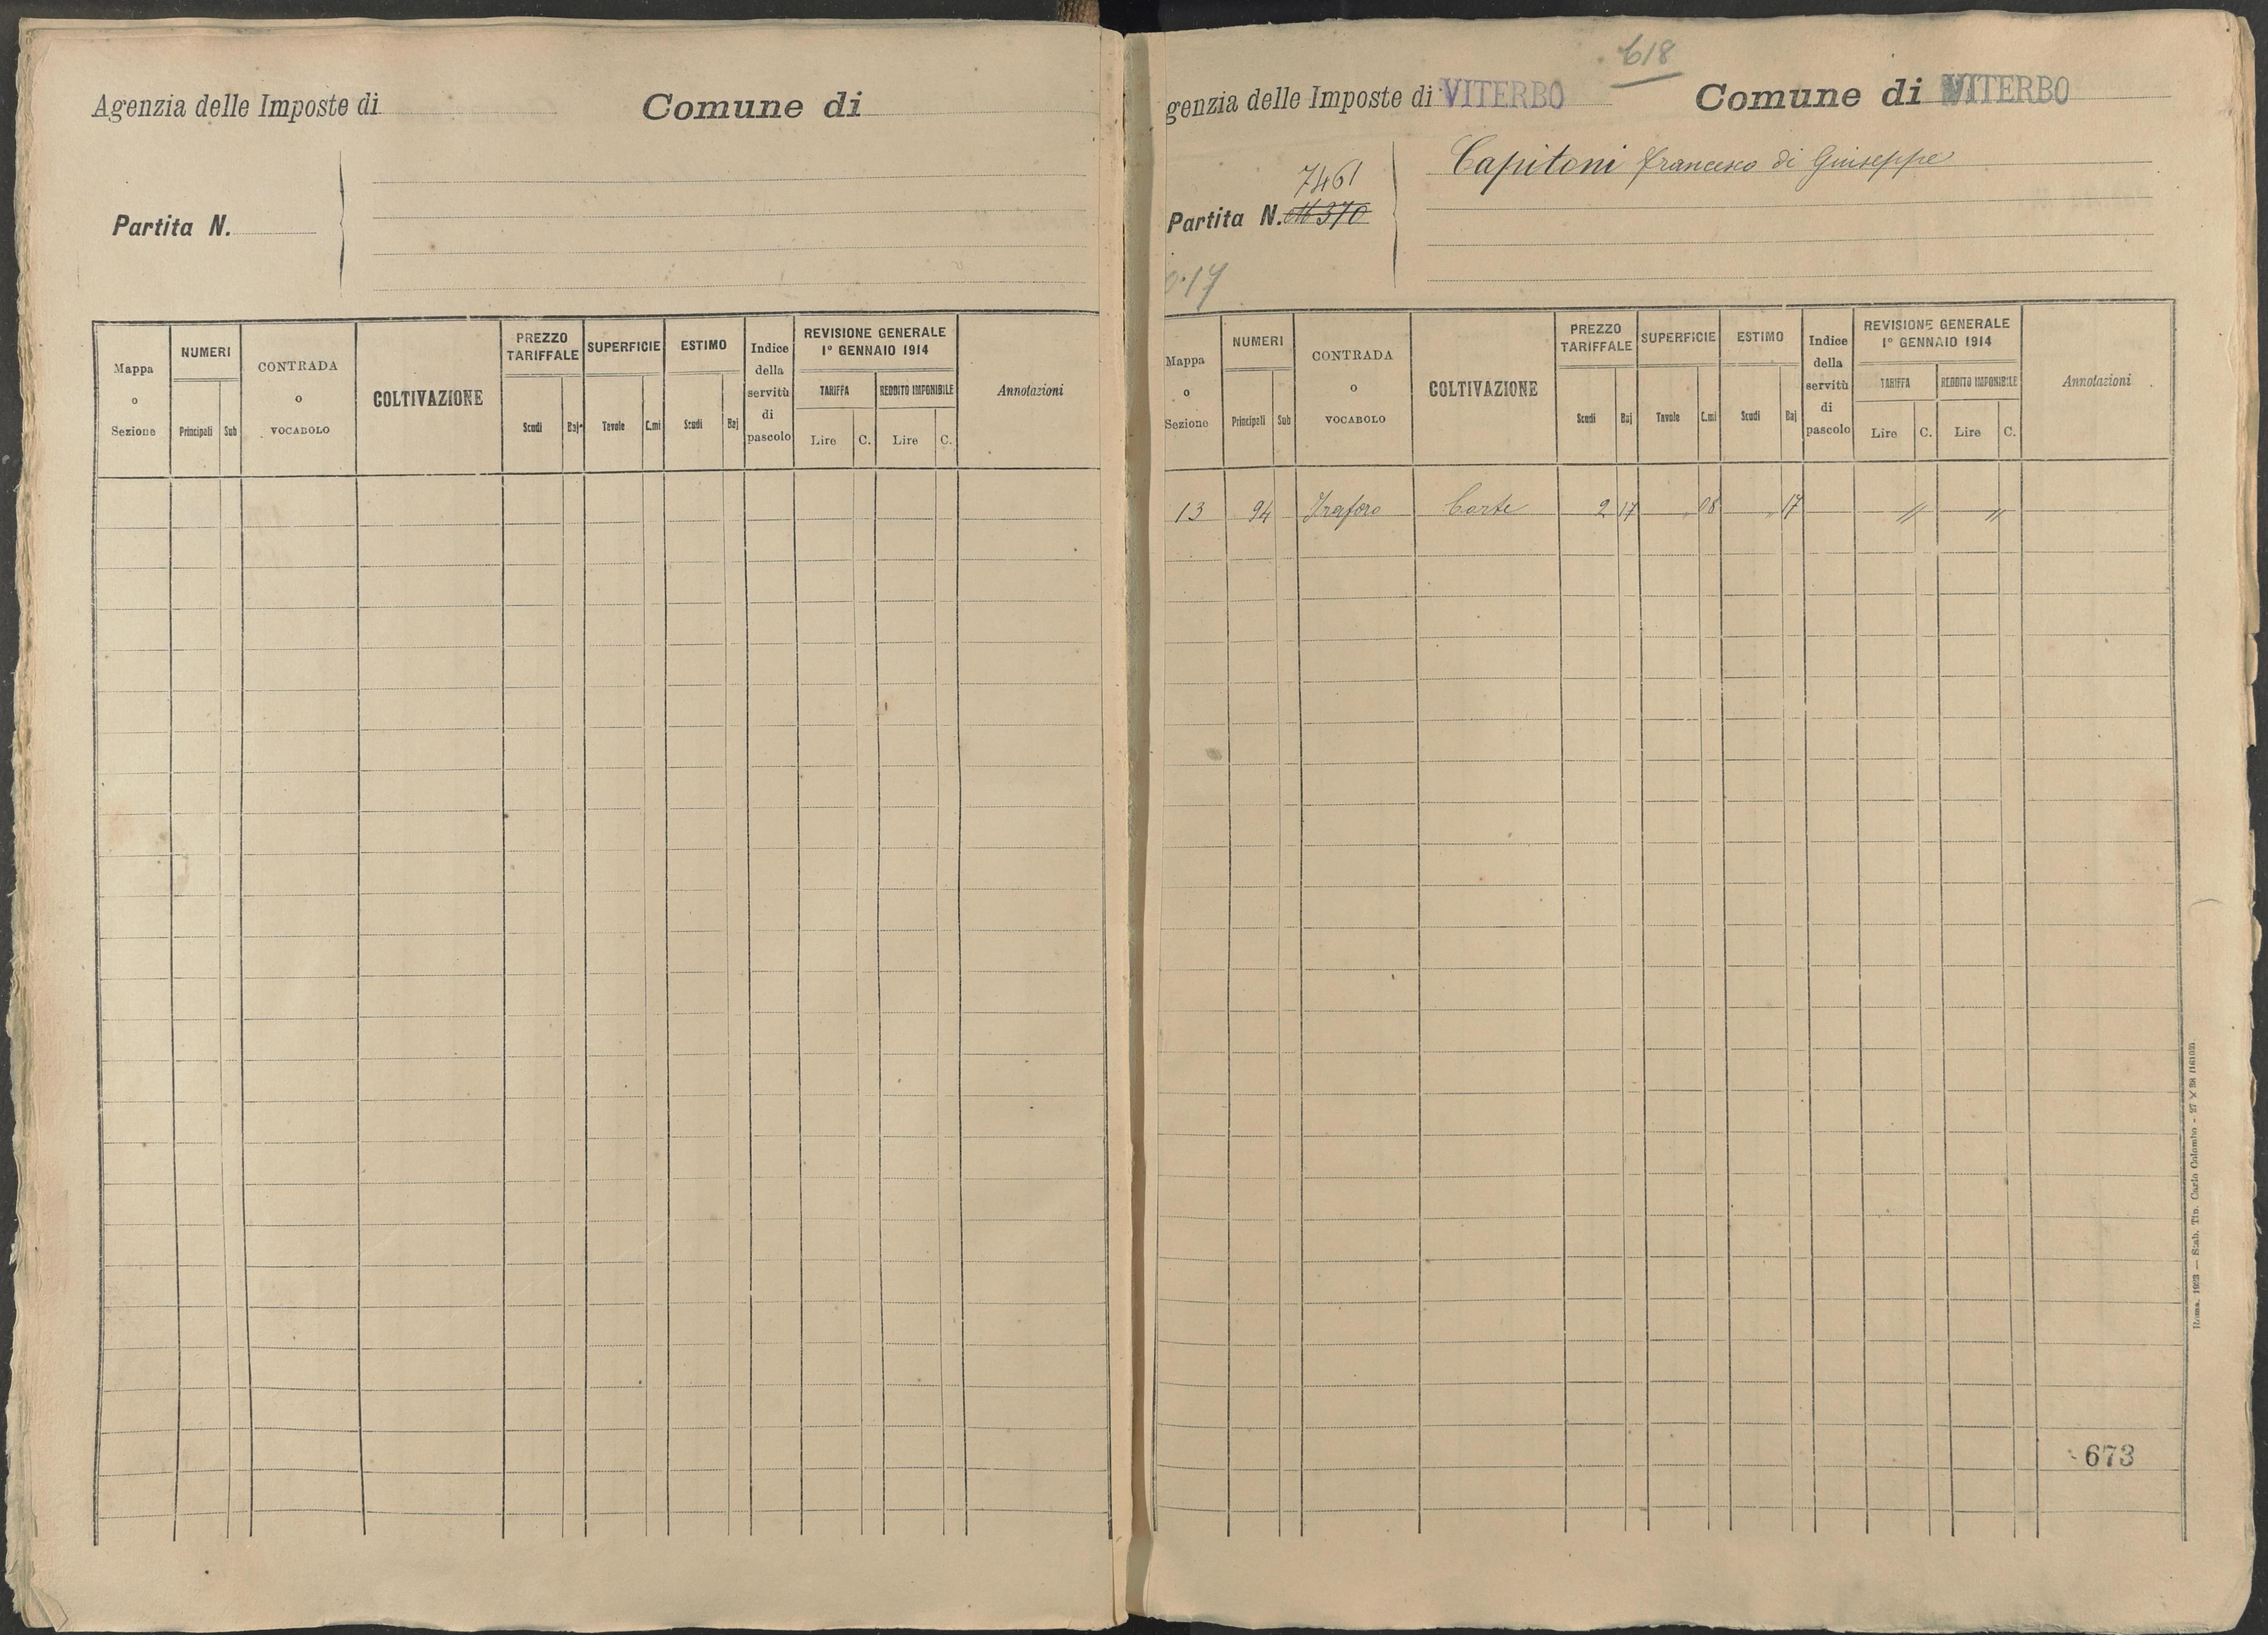 Agenzia delle Imposte di
Comune di
Partita N.
Mappa o Sezione
NUMERI
Principali Sub
CONTRADA o VOCABOLO
COLTIVAZIONE
PREZZO TARIFFALE
Scudi Baj
SUPERFICIE
Tavole C.mi
ESTIMO
Scudi Baj
Indice della servitù di pascolo
REVISIONE GENERALE
1° GENNAIO 1914
TARIFFA REDDITO IMPONIBILE
Lire C. Lire C.
Annotazioni
618
genzia delle Imposte di VITERBO
Comune di VITERBO
Capitoni Francesco di Giuseppe
7461
Partita N.
0.17
Mappa o Sezione
NUMERI
Principali Sub
CONTRADA o VOCABOLO
COLTIVAZIONE
PREZZO TARIFFALE
Scudi Baj
SUPERFICIE
Tavole C.mi
ESTIMO
Scudi Baj
Indice della servitù di pascolo
REVISIONE GENERALE
1° GENNAIO 1914
TARIFFA REDDITO IMPONIBILE
Lire C. Lire C.
Annotazioni
13 94 Traforo Corte 2 17 08 17 // //
673
Roma. 1923 — Stab. Tip. Carlo Colombo